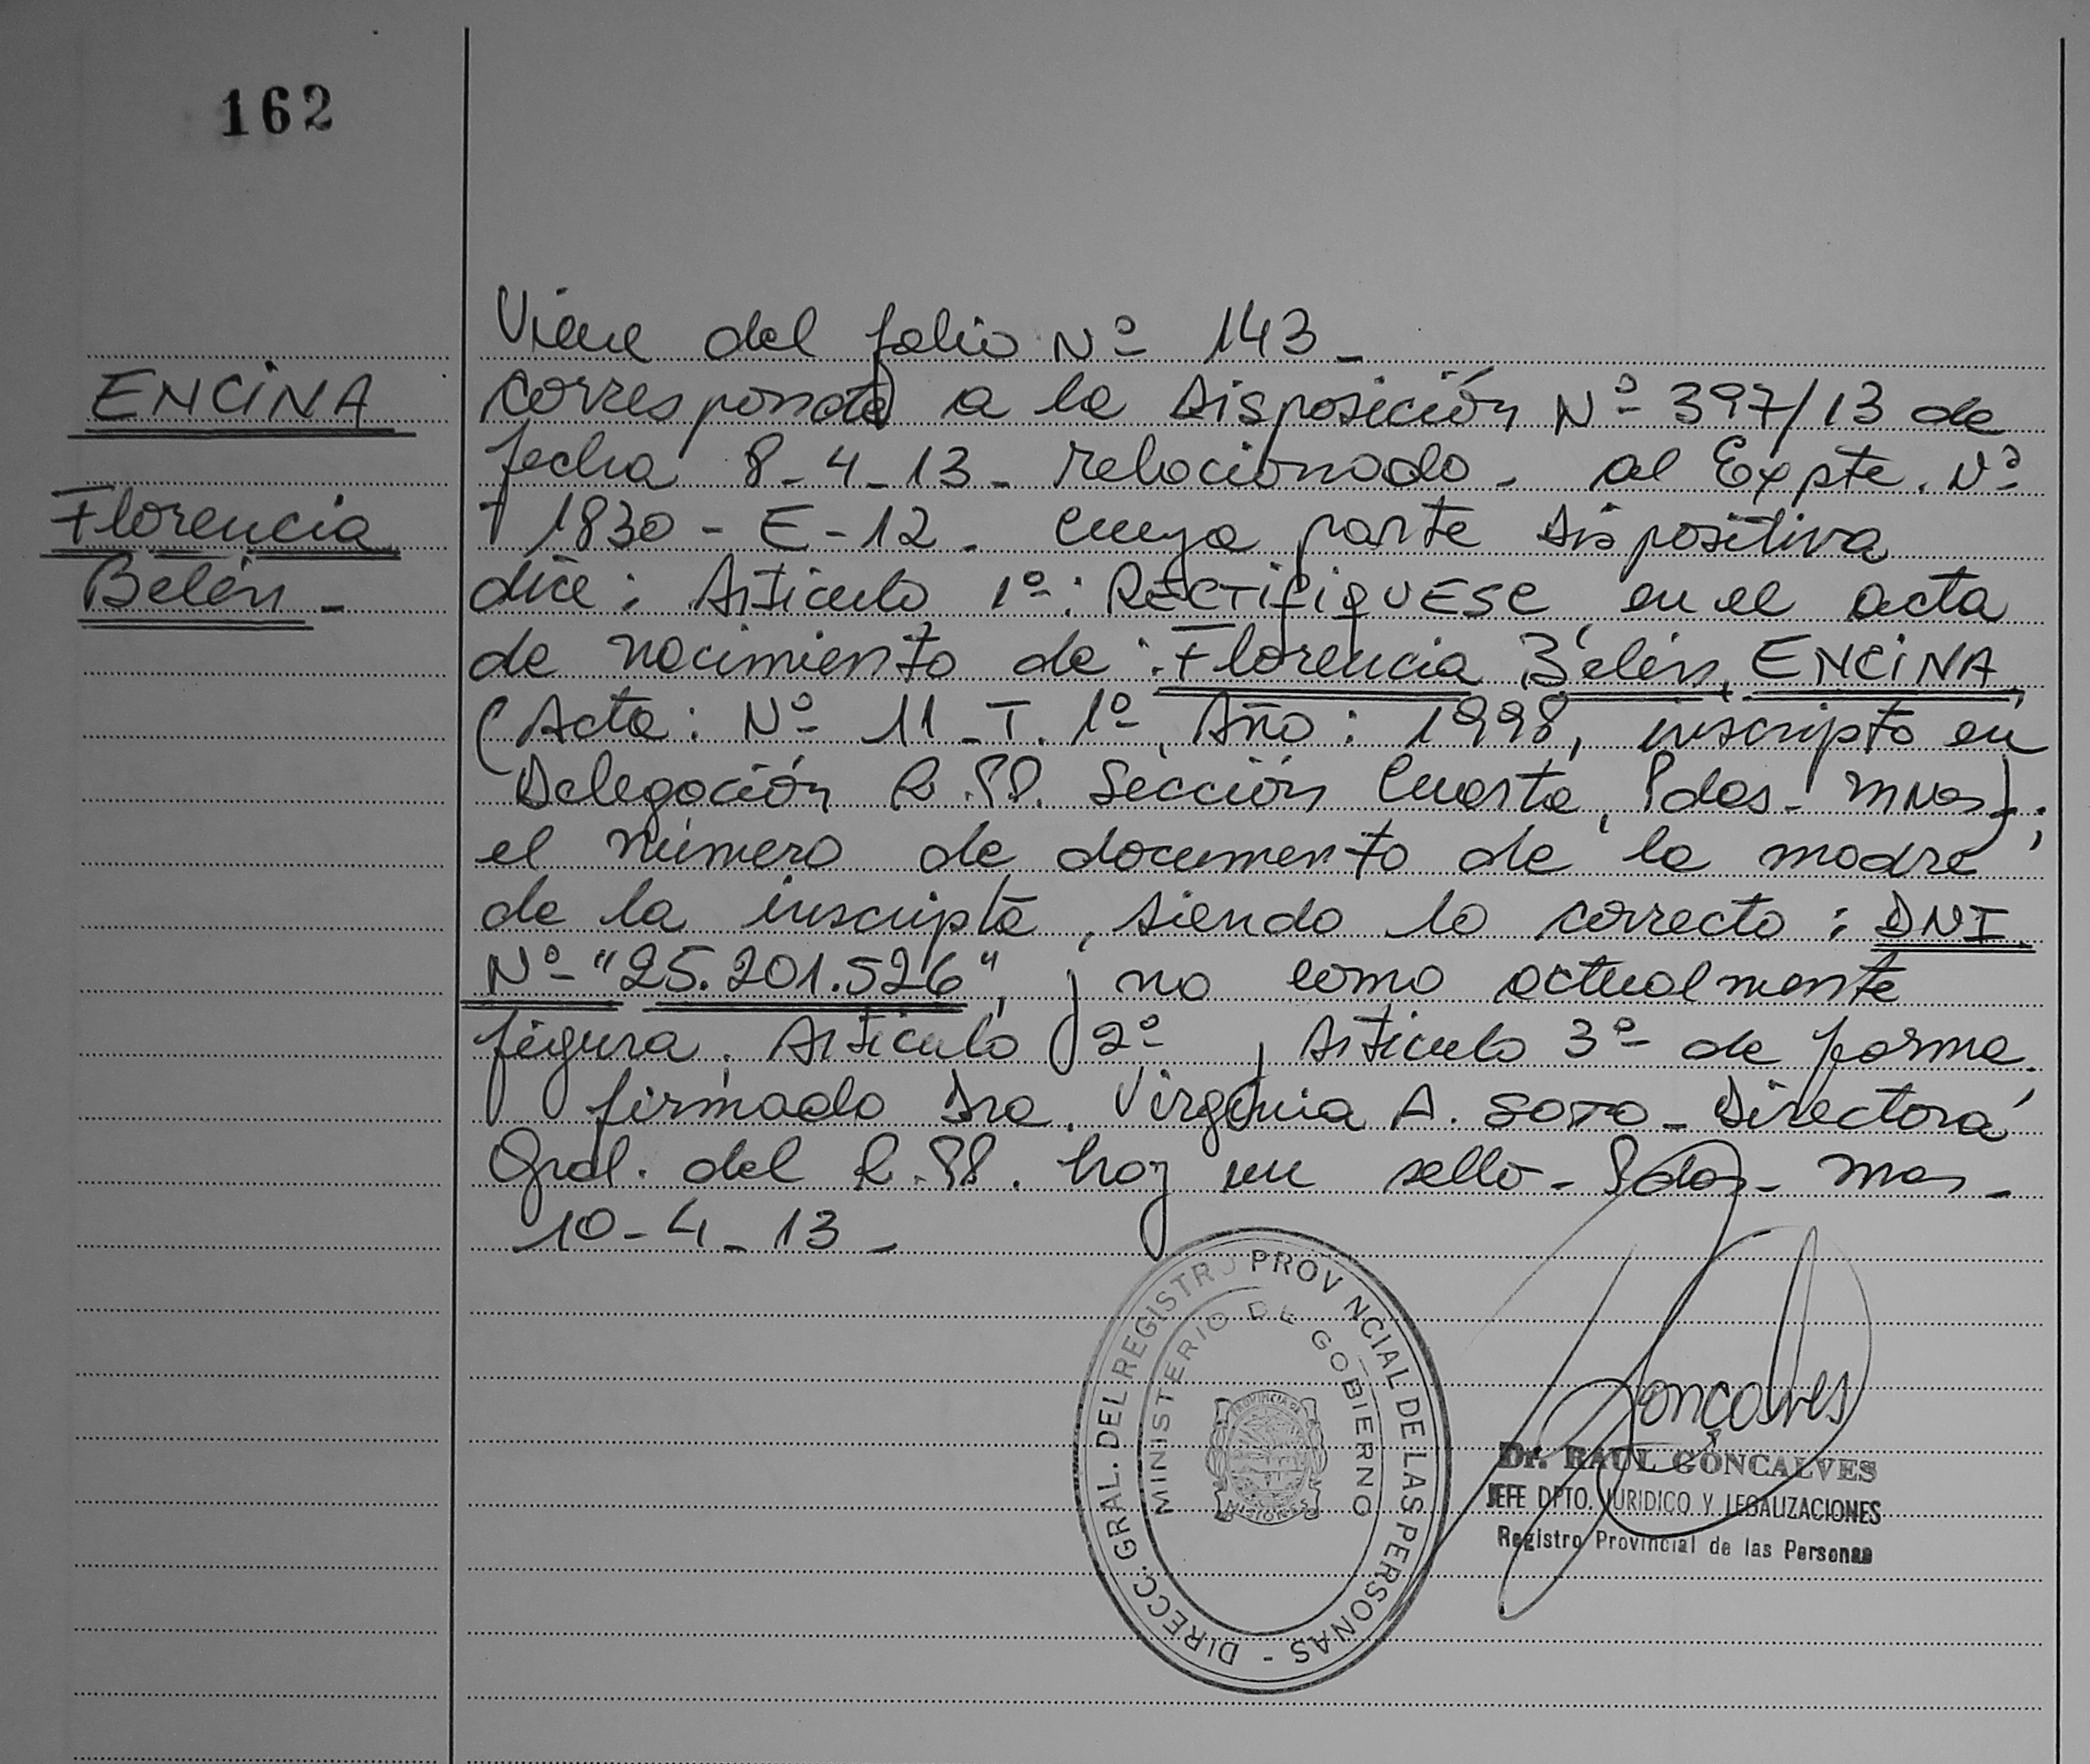 162
Viene del folio Nº 143_
ENCINA
corresponde a la Disposición Nº 397/13 de
fecha 8-4-13- relacionado - al Expte. Nº
Florencia
1830-E-12- cuya parte Dispositiva
Belén-
dice: Articulo 1º: RECTIFIQUESE en el acta
de nacimiento de: Florencia Belén, ENCINA
(Acta: Nº 11-T. 1º, Año: 1998, inscripta en
Delegación R.PP. Sección Cuarta, Pdas- mnes).;
el número de documento de la madre
de la inscripta, siendo lo correcto: DNI
Nº "25.201.526", y no como actualmente
figura. Articulo 2º, Articulo 3º de forma.
firmado Dra. Virginia A. SOTO-Directora
Gral. del R.PP. hay un sello- Pdas- mnes-
10-4-13-
DIRECC. GRAL. DEL REGISTRO PROVNCIAL DE LAS PERSONAS -
MINISTERIO DE GOBIERNO
PROVINCIA DE
MISIONES
Gonçalves
Dr. RAUL GONCALVES
JEFE DPTO. JURIDICO Y LEGALIZACIONES
Registro Provincial de las Personas